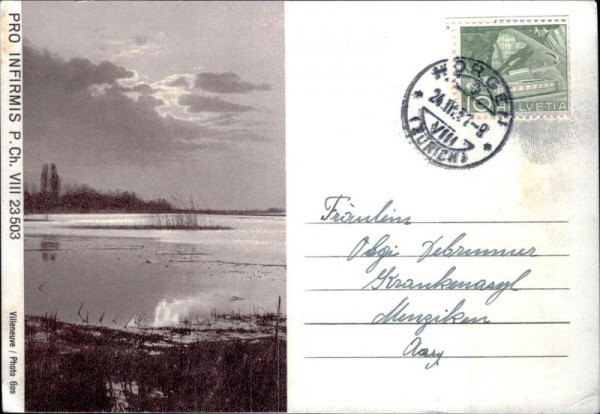 PRO INFIRMIS P. Ch. VIII 23503
Villeneuve / Photo Gos
HORGEN
VIII
(ZÜRICH)
10 HELVETIA
Fräulein
Debrunner
Krankenasyl
Menziken
Aarg